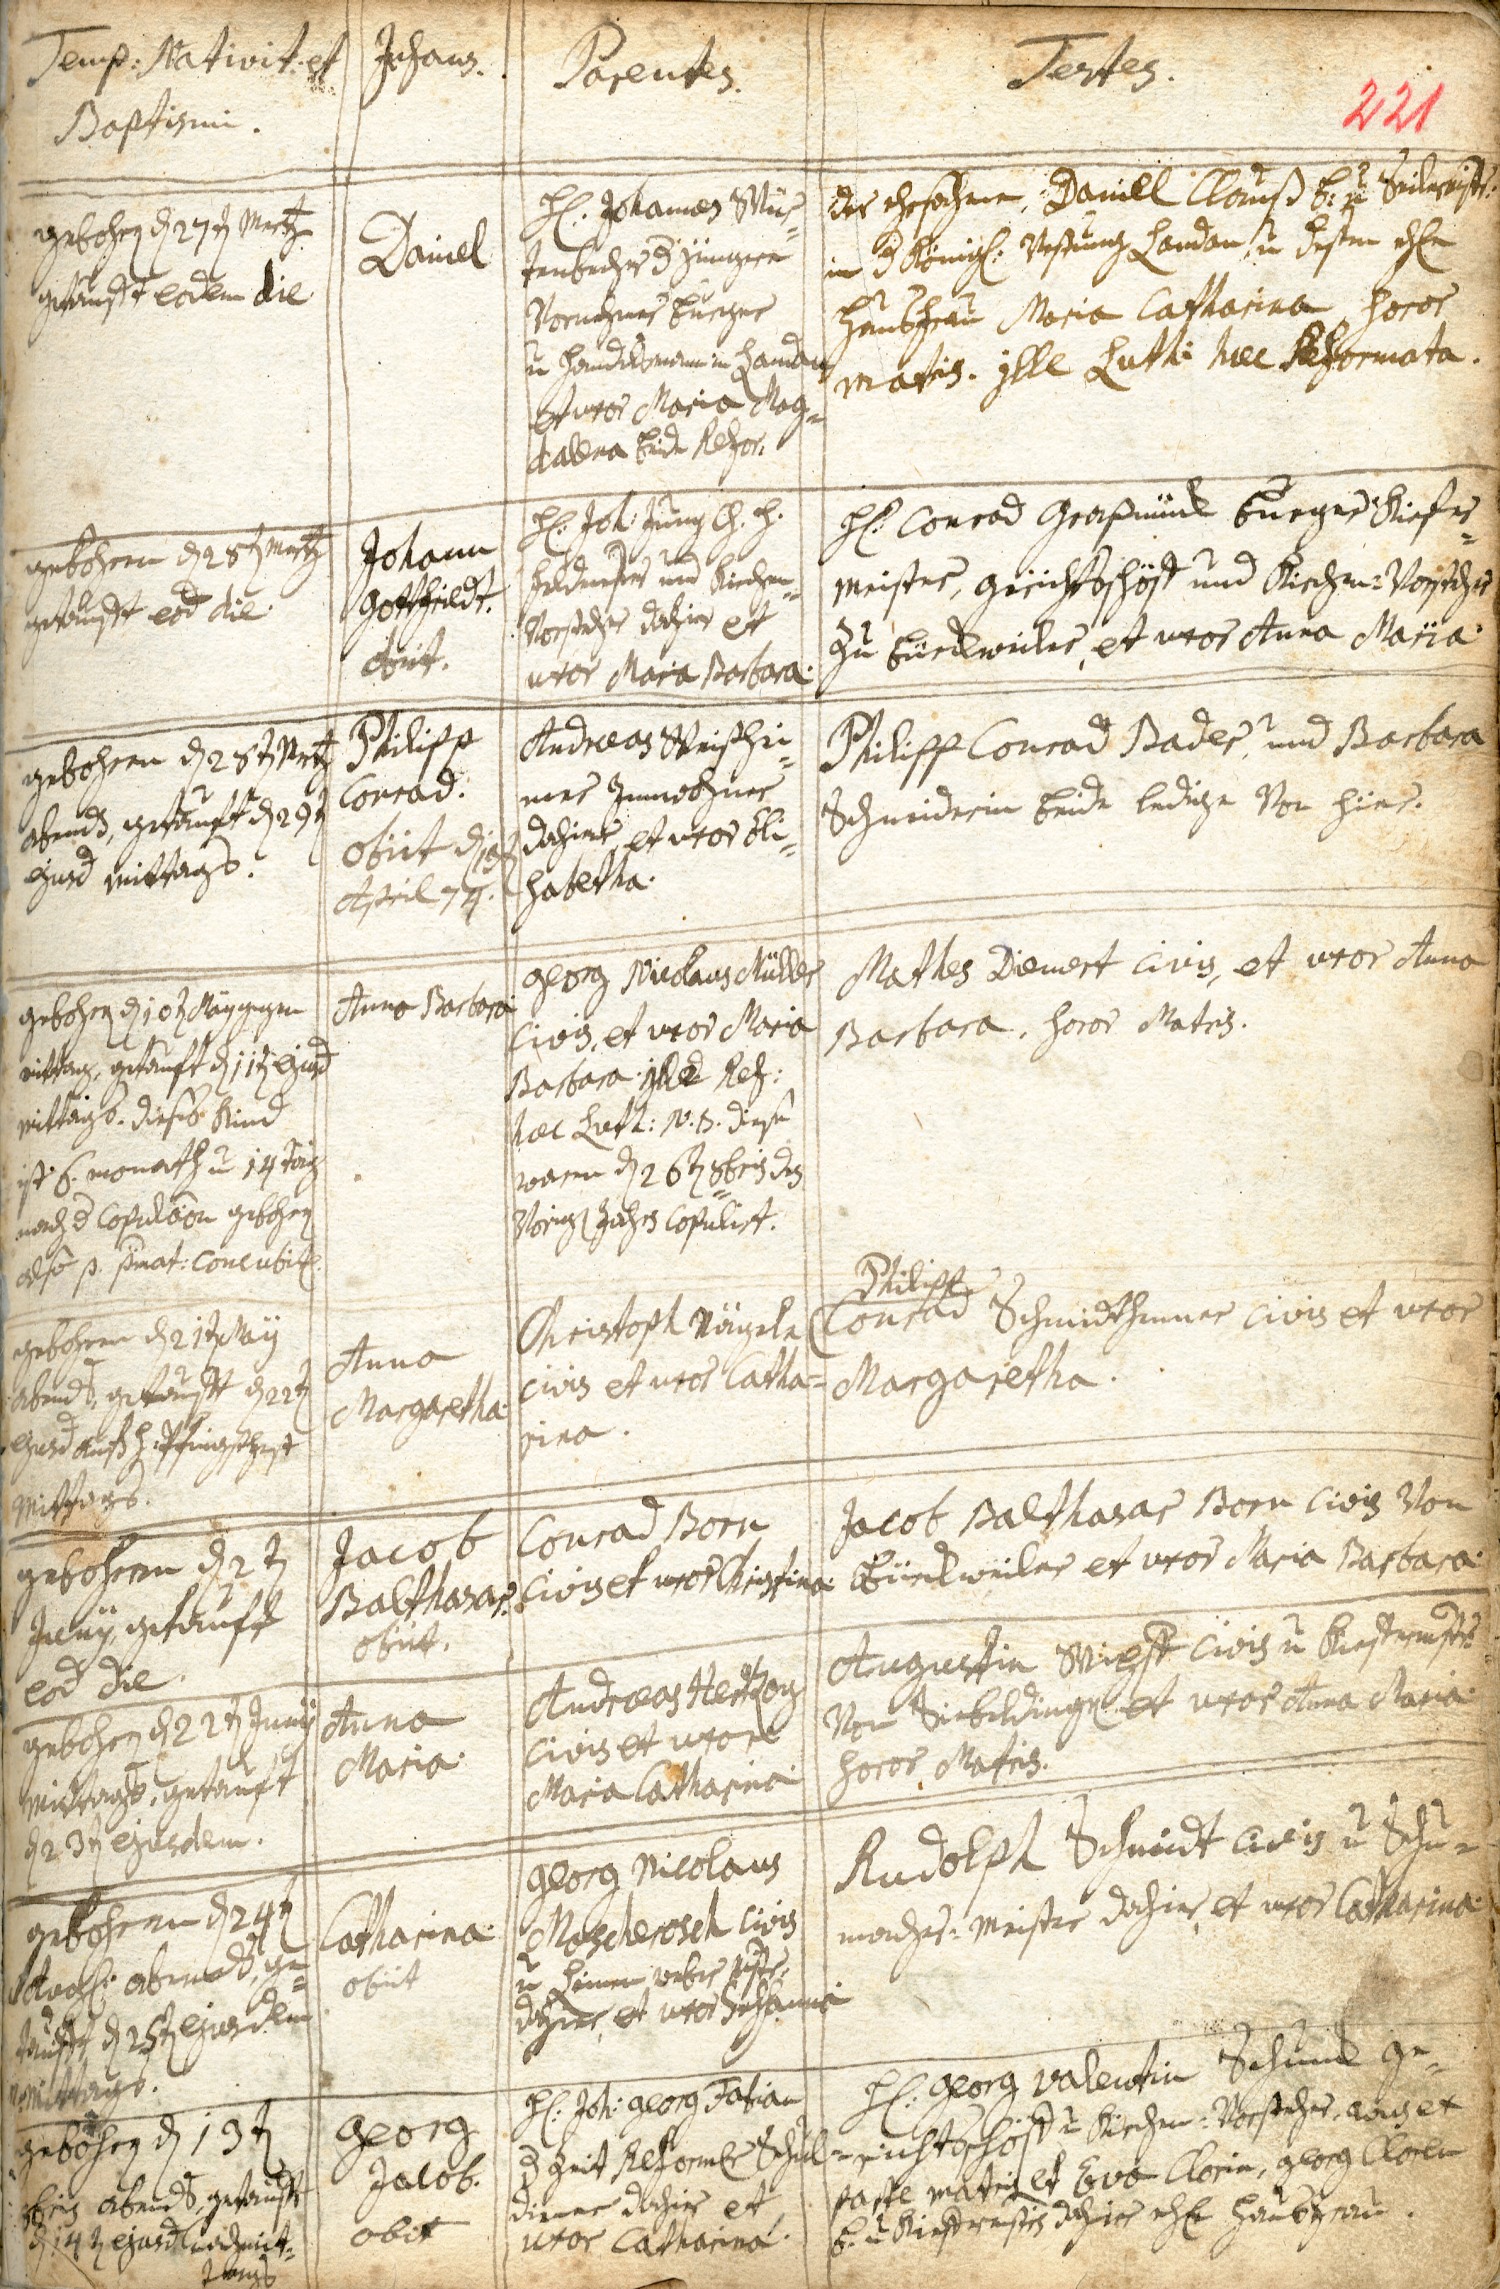 Temp: Nativit: et
Baptismi.
Infans.
Parentes.
Testes.
221
gebohrn d 27t Mertz
getaufft eodem die
Daniel
H: Johannes
d jüngere
Vornehmer burger
u handelsmann in Landau
et uxor Maria Mag=
dalena beide Refor:
Daniel Clauß b: u
in d Königl: Vestung Landau, u dessen ehl
haußfrau Maria Catharina soror
matris. ille Luth: haec Reformata.
gebohrn d 28t Mertz
getaufft eod die
Johann
Gottfriedt.
obiit.
H: Joh: Jung
und Kirchen=
Vorsteher dahier et
uxor Maria Barbara.
H: Conrad Graßmück burger Kiefer=
meister, gerichtsschöff und Kirchen=Vorsteher
zu bürckweiler, et uxor Anna Maria.
gebohren d 28t Mertz
abends, getaufft d 29t
ejusd mittags.
Philipp
Conrad.
obiit d
April 74.
Andreas
mer Innwohner
dahier, et uxor Eli=
sabetha.
Philipp Conrad Bader, und Barbara
Schneiderin beide ledige Von hier.
gebohrn d 10t May gegen
mittag, getaufft d 11t ejusd
mittags. dieses Kind
ist 6. monath u 14 tag
nach d Copulaon gebohrn
also p. pmat: Concubit.
Anna Barbara
Georg Nicolaus Müller
civis, et uxor Maria
Barbara. ille Ref:
haec Luth: N.B. diese
waren d 26t 8bris des
Vorigen Jahrs Copulirt.
Mathes Diemert civis, et uxor Anna
Barbara, soror Matris.
gebohren d 21t May
abends, getaufft d 22t
ejusd auff H: Pfingstfest
Mittags.
Anna
Margaretha.
Christoph Nägele
civis et uxor Catha=
rina.
Philipp
Conrad Schmidthenner civis et uxor
Margaretha.
gebohren d 2t
Juny, getaufft
eod die.
Jacob
Balthasar.
obiit.
Conrad Born
civis et uxor Christina.
Jacob Balthasar Born civis Von
bürckweiler et uxor Maria Barbara.
gebohrn d 22t Juny
mittags, getaufft
d 23t ejusdem.
Anna
Maria.
Andreas Hertzog
civis et uxor
Maria Catharina.
Augustin Wiest civis u
Von Siebeldingen et uxor Anna Maria.
soror Matris.
gebohren d 24t
abends, ge=
taufft d 25t ejusdem
Mittags.
Catharina.
obiit
Georg Nicolaus
Moscherosch civis
u Leinenweber mstr.
dahier, et uxor Susanna
Rudolph Schmidt civis u Schu=
macher=meister dahier, et uxor Catharina.
gebohrn d 13t
abends, getaufft
d 14t ejusd nachmit=
tags
Georg
Jacob.
obiit
H: Joh: Georg Fabian
d Zeit Reformirter Schul=
diener dahier et
uxor Catharina.
H: Georg Valentin Schunck ge=
richtsschöff u Kirchen=Vorsteher, avus ex
parte matris, et Eva Clorin, Georg Cloren
b. u dahier ehl haußfrau.